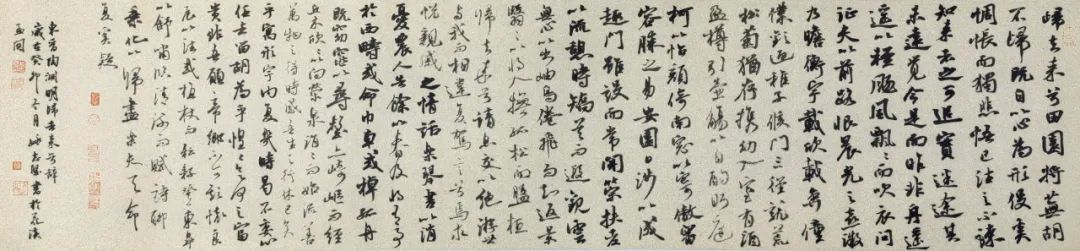 歸去来兮田園将蕪胡
不歸既自以心為形役奚
惆悵而獨悲悟已往之不諫
知来者之可追實迷途其
未遠覺今是而昨非舟遥
遥以輕颺風飄飄而吹衣問
征夫以前路恨晨光之熹微
乃瞻衡宇載欣載奔僮
僕歡迎稚子候門三徑就荒
松菊猶存携幼入室有酒
盈樽引壺觴以自酌眄庭
柯以怡顔倚南窗以寄傲審
容膝之易安園日涉以成
趣門雖設而常關策扶老
以流憩時矯首而遐觀雲
無心以出岫鳥倦飛而知返景
翳翳以将入撫孤松而盤桓
歸去来兮請息交以絶游世
與我而相違復駕言兮焉求
悦親戚之情話樂琴書以消
憂農人告余以春及将有事
於西疇或命巾車或棹孤舟
既窈窕以尋壑亦崎嶇而經
丘木欣欣以向榮泉涓涓而始流善
萬物之得時感吾生之行休已矣
乎寓形宇内復幾時曷不委心
任去留胡為乎遑遑兮欲何之富
貴非吾願帝鄉不可期懷良
辰以孤往或植杖而耘耔登東皋
以舒嘯臨清流而賦詩聊
乘化以歸盡樂夫天命
復奚疑
東晋陶淵明歸去来兮辞
歲在癸卯冬月姚志書於花溪